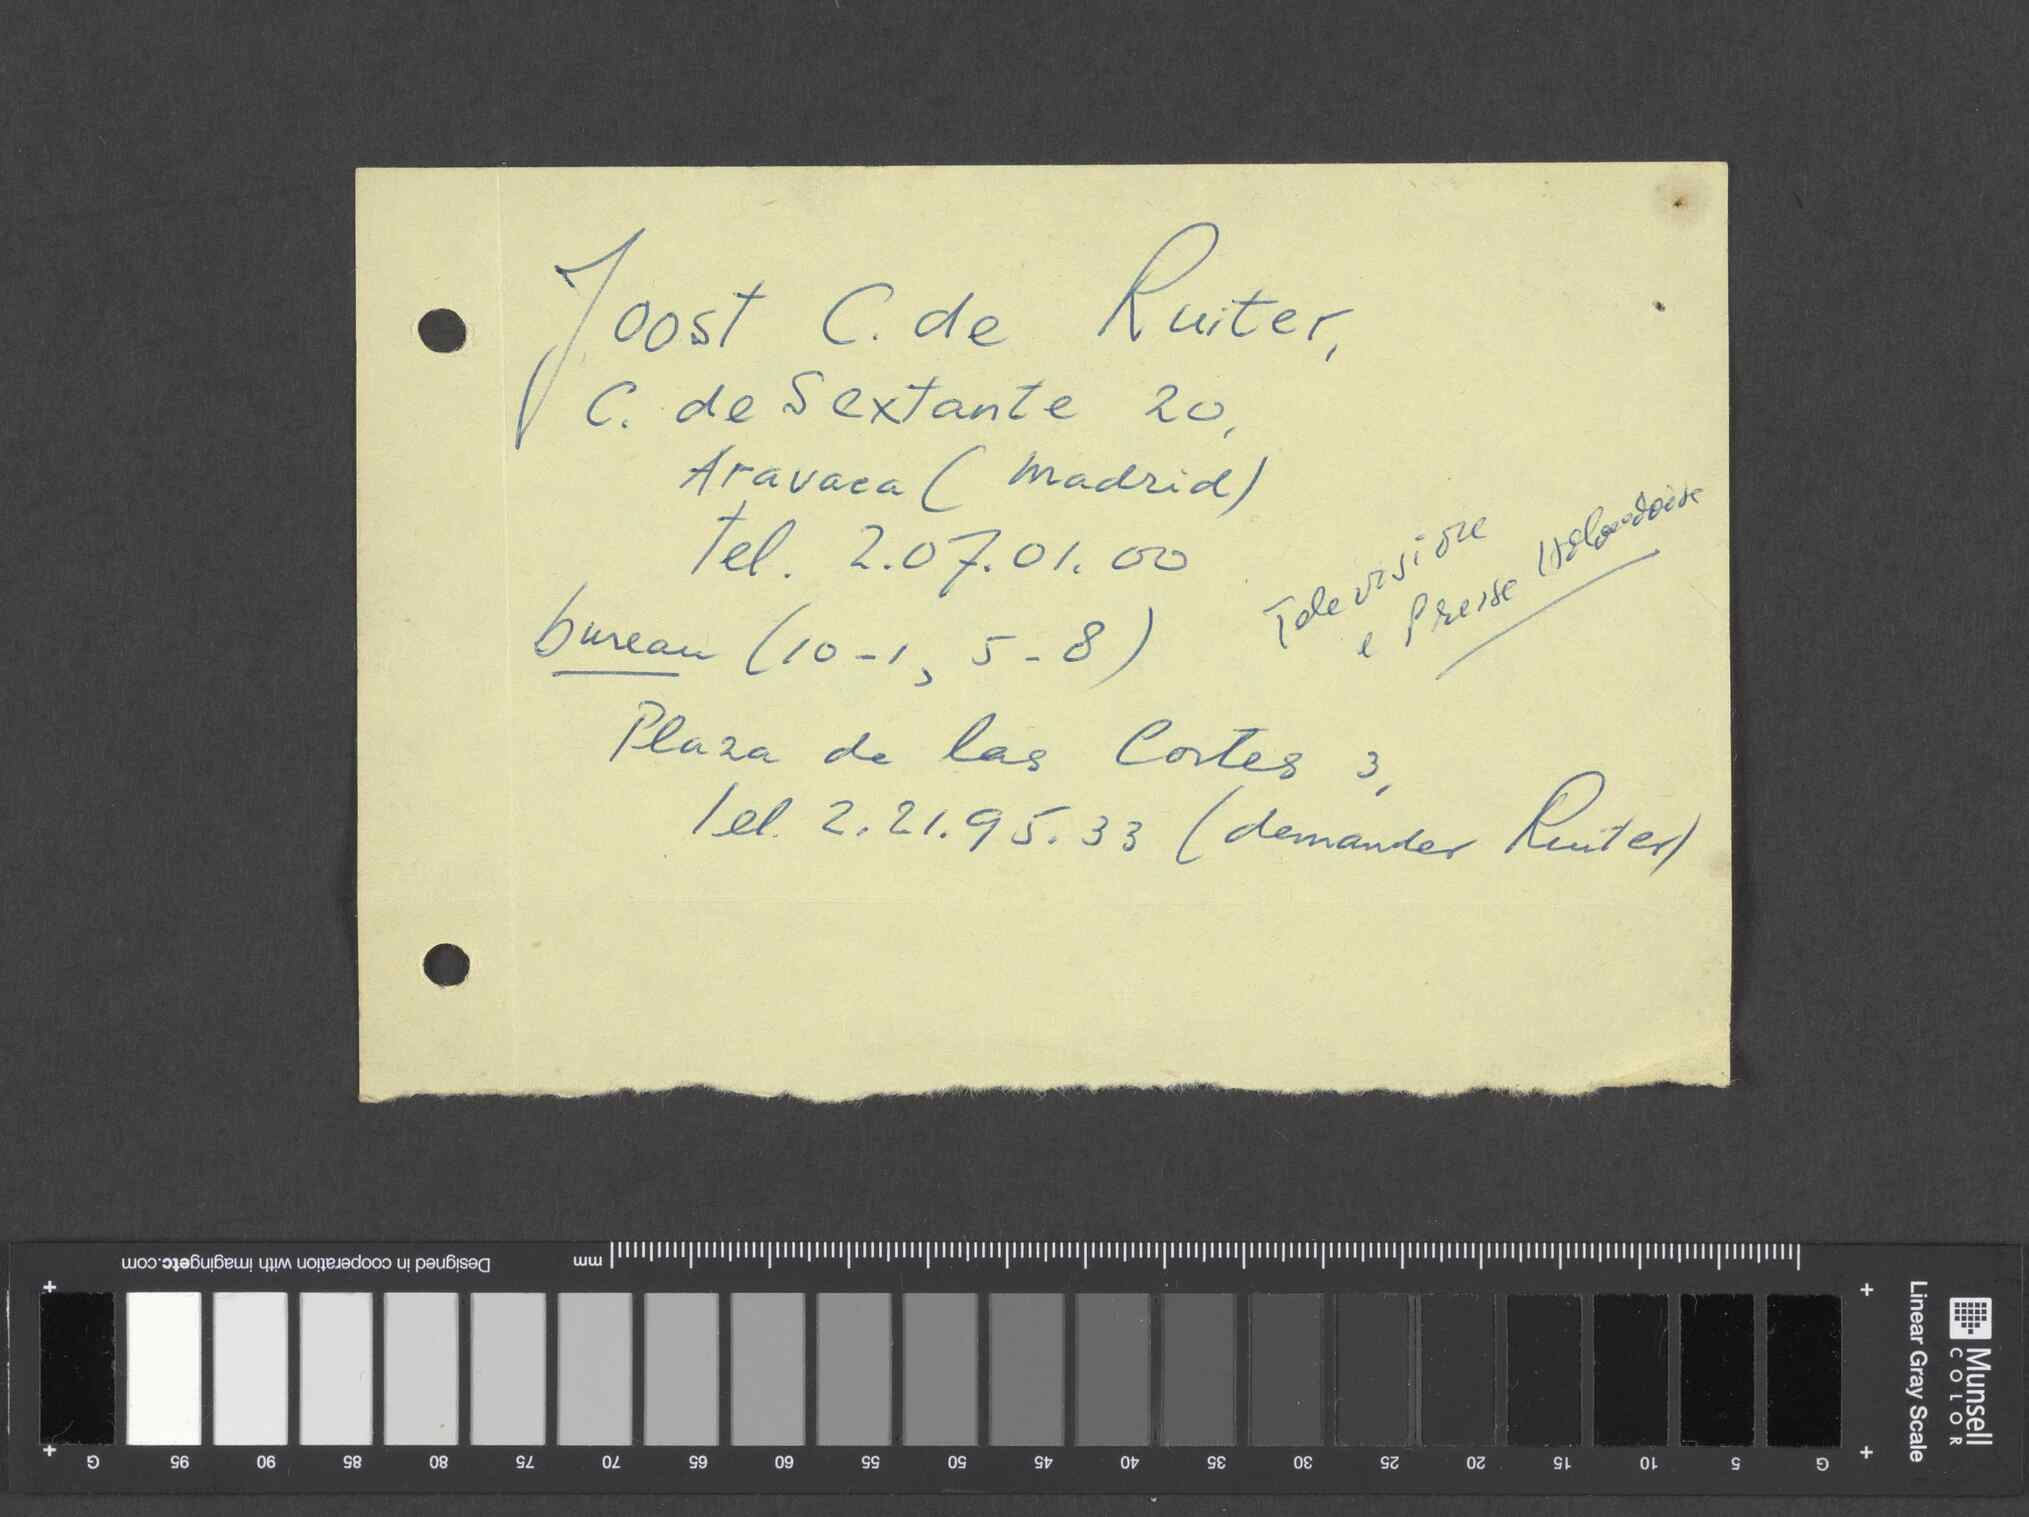 Joost C. de Ruiter,
C. de Sextante 20,
Aravaca (Madrid)
Tel. 2.07.01.00
bureau (10-1, 5-8)
Plaza de las Cortes 3,
Tel. 2.21.95.33 (demander Ruiter)
Televisione
e
Designed in cooperation with imagingetc.com
mm
G 95 90 85 80 75 70 65 60 55 50 45 40 35 30 25 20 15 10 5 G
Linear Gray Scale
Munsell
COLOR